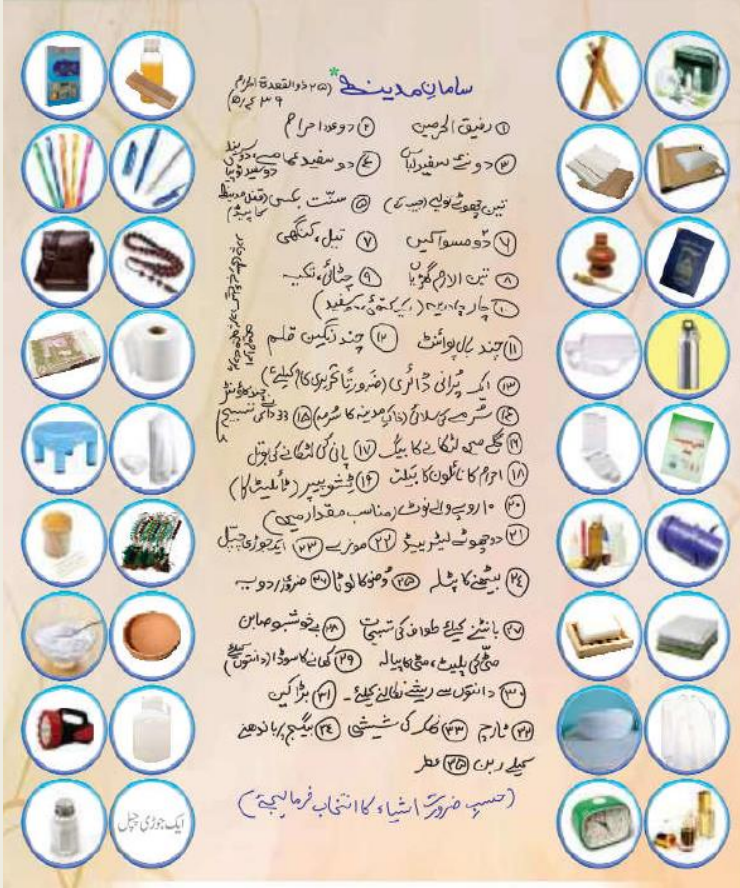 سامانِ مدینہ
(۲۵ ذوالقعدۃ الحرام
① رفیق الحرمین ② دو عدد احرام
③ دو نئے سفید لباس ④ دو سفید عمامے
تین چھوٹے تولیے (جیب کے) ⑤ سنّت بکس (قفلِ مدینہ
⑥ دو مسواکیں ⑦ تیل، کنگھی
⑧ تین الارم گھڑیاں ⑨ چٹائی، تکیہ
⑩ چار چادریں (ایک کتھئی،
⑪ چند بال پوائنٹ ⑫ چند رنگین قلم
⑬ ایک پُرانی ڈائری (ضرورتاً تحریری کام کیلئے)
⑭ سُرمے کی سلائی (خاکِ مدینہ کا سُرمہ) ⑮ تسبیح
⑯ گلے میں لٹکانے کا بیگ ⑰ پانی کی لٹکانے کی بوتل
⑱ احرام کا نائلون کا بیلٹ ⑲ ٹشو پیپر (ٹائلیٹ کا)
⑳ ۱۰ روپے والے نوٹ (مناسب مقدار میں)
㉑ دو چھوٹے لیٹر پیڈ ㉒ موزے ㉓ ایک جوڑی چپل
㉔ بیٹھنے کا پٹلہ ㉕ وُضو کا لوٹا ㉖
㉗ بانٹنے کیلئے طواف کی تسبیحات ㉘ بے خوشبو صابن
مٹّی کی پلیٹ، مٹی کا پیالہ ㉙ کھانے کا سوڈا (دانتوں کیلئے)
㉚ دانتوں سے ریشے نکالنے کیلئے۔ ㉛ بڑا کین
㉜ ٹارچ ㉝ نمک کی شیشی ㉞ بیگیج پر باندھنے
کیلئے ربن ㉟ عطر
(حسبِ ضرورت اشیاء کا انتخاب فرما لیجئے)
ایک جوڑی چپل